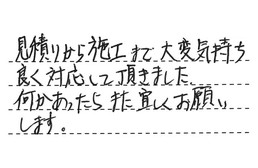 見積りから施工まで大変気持ち
良く対応して頂きました
何かあったらまた宜しくお願い
します。